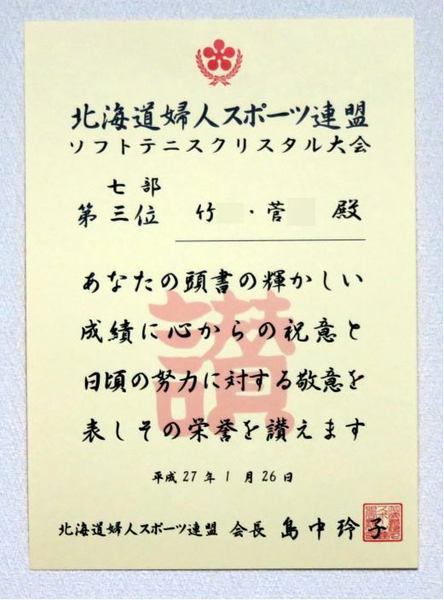 北海道婦人スポーツ連盟
ソフトテニスクリスタル大会
七部
第三位 竹 ・菅 殿
あなたの頭書の輝かしい
成績に心からの祝意と
日頃の努力に対する敬意を
表しその栄誉を讃えます
讃
平成27年1月26日
北海道婦人スポーツ連盟 会長 島中玲子